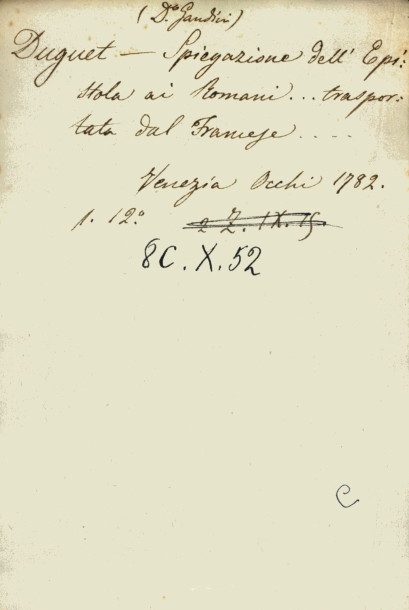 (D.º Gandini)
Duguet — Spiegazione dell' Epi:
stola ai Romani... traspor:
tata dal Francese ....
Venezia Occhi 1782.
1. 12.º 2 Z. IX. 15
8C.X.52
C